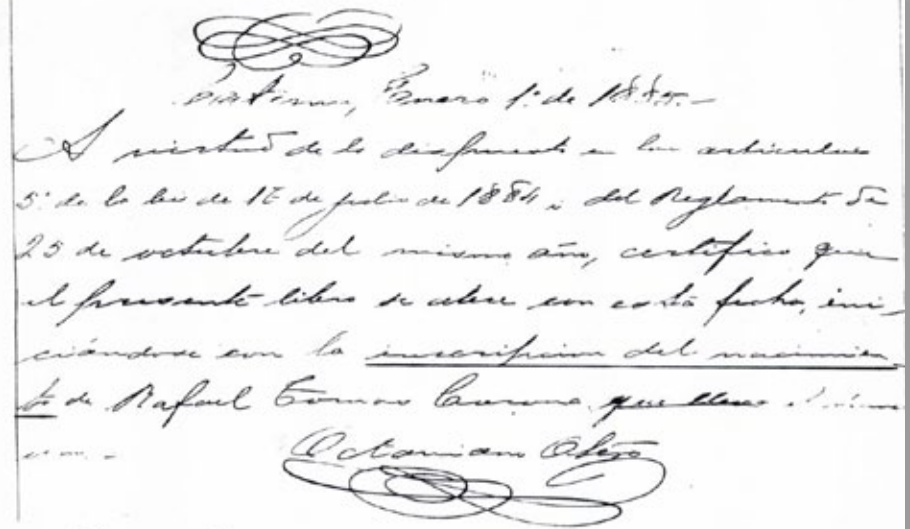 Enero 1º de 1885.-
A virtud de lo dispuesto en los articulos
5º de la lei de 16 de julio de 1884 i del Reglamento de
25 de octubre del mismo año, certifico que
el presente libro se abre con esta fecha, ini-
ciándose con la inscripcion del nacimien
to de Rafael Tomas Corona que lleva el número
Octaviano